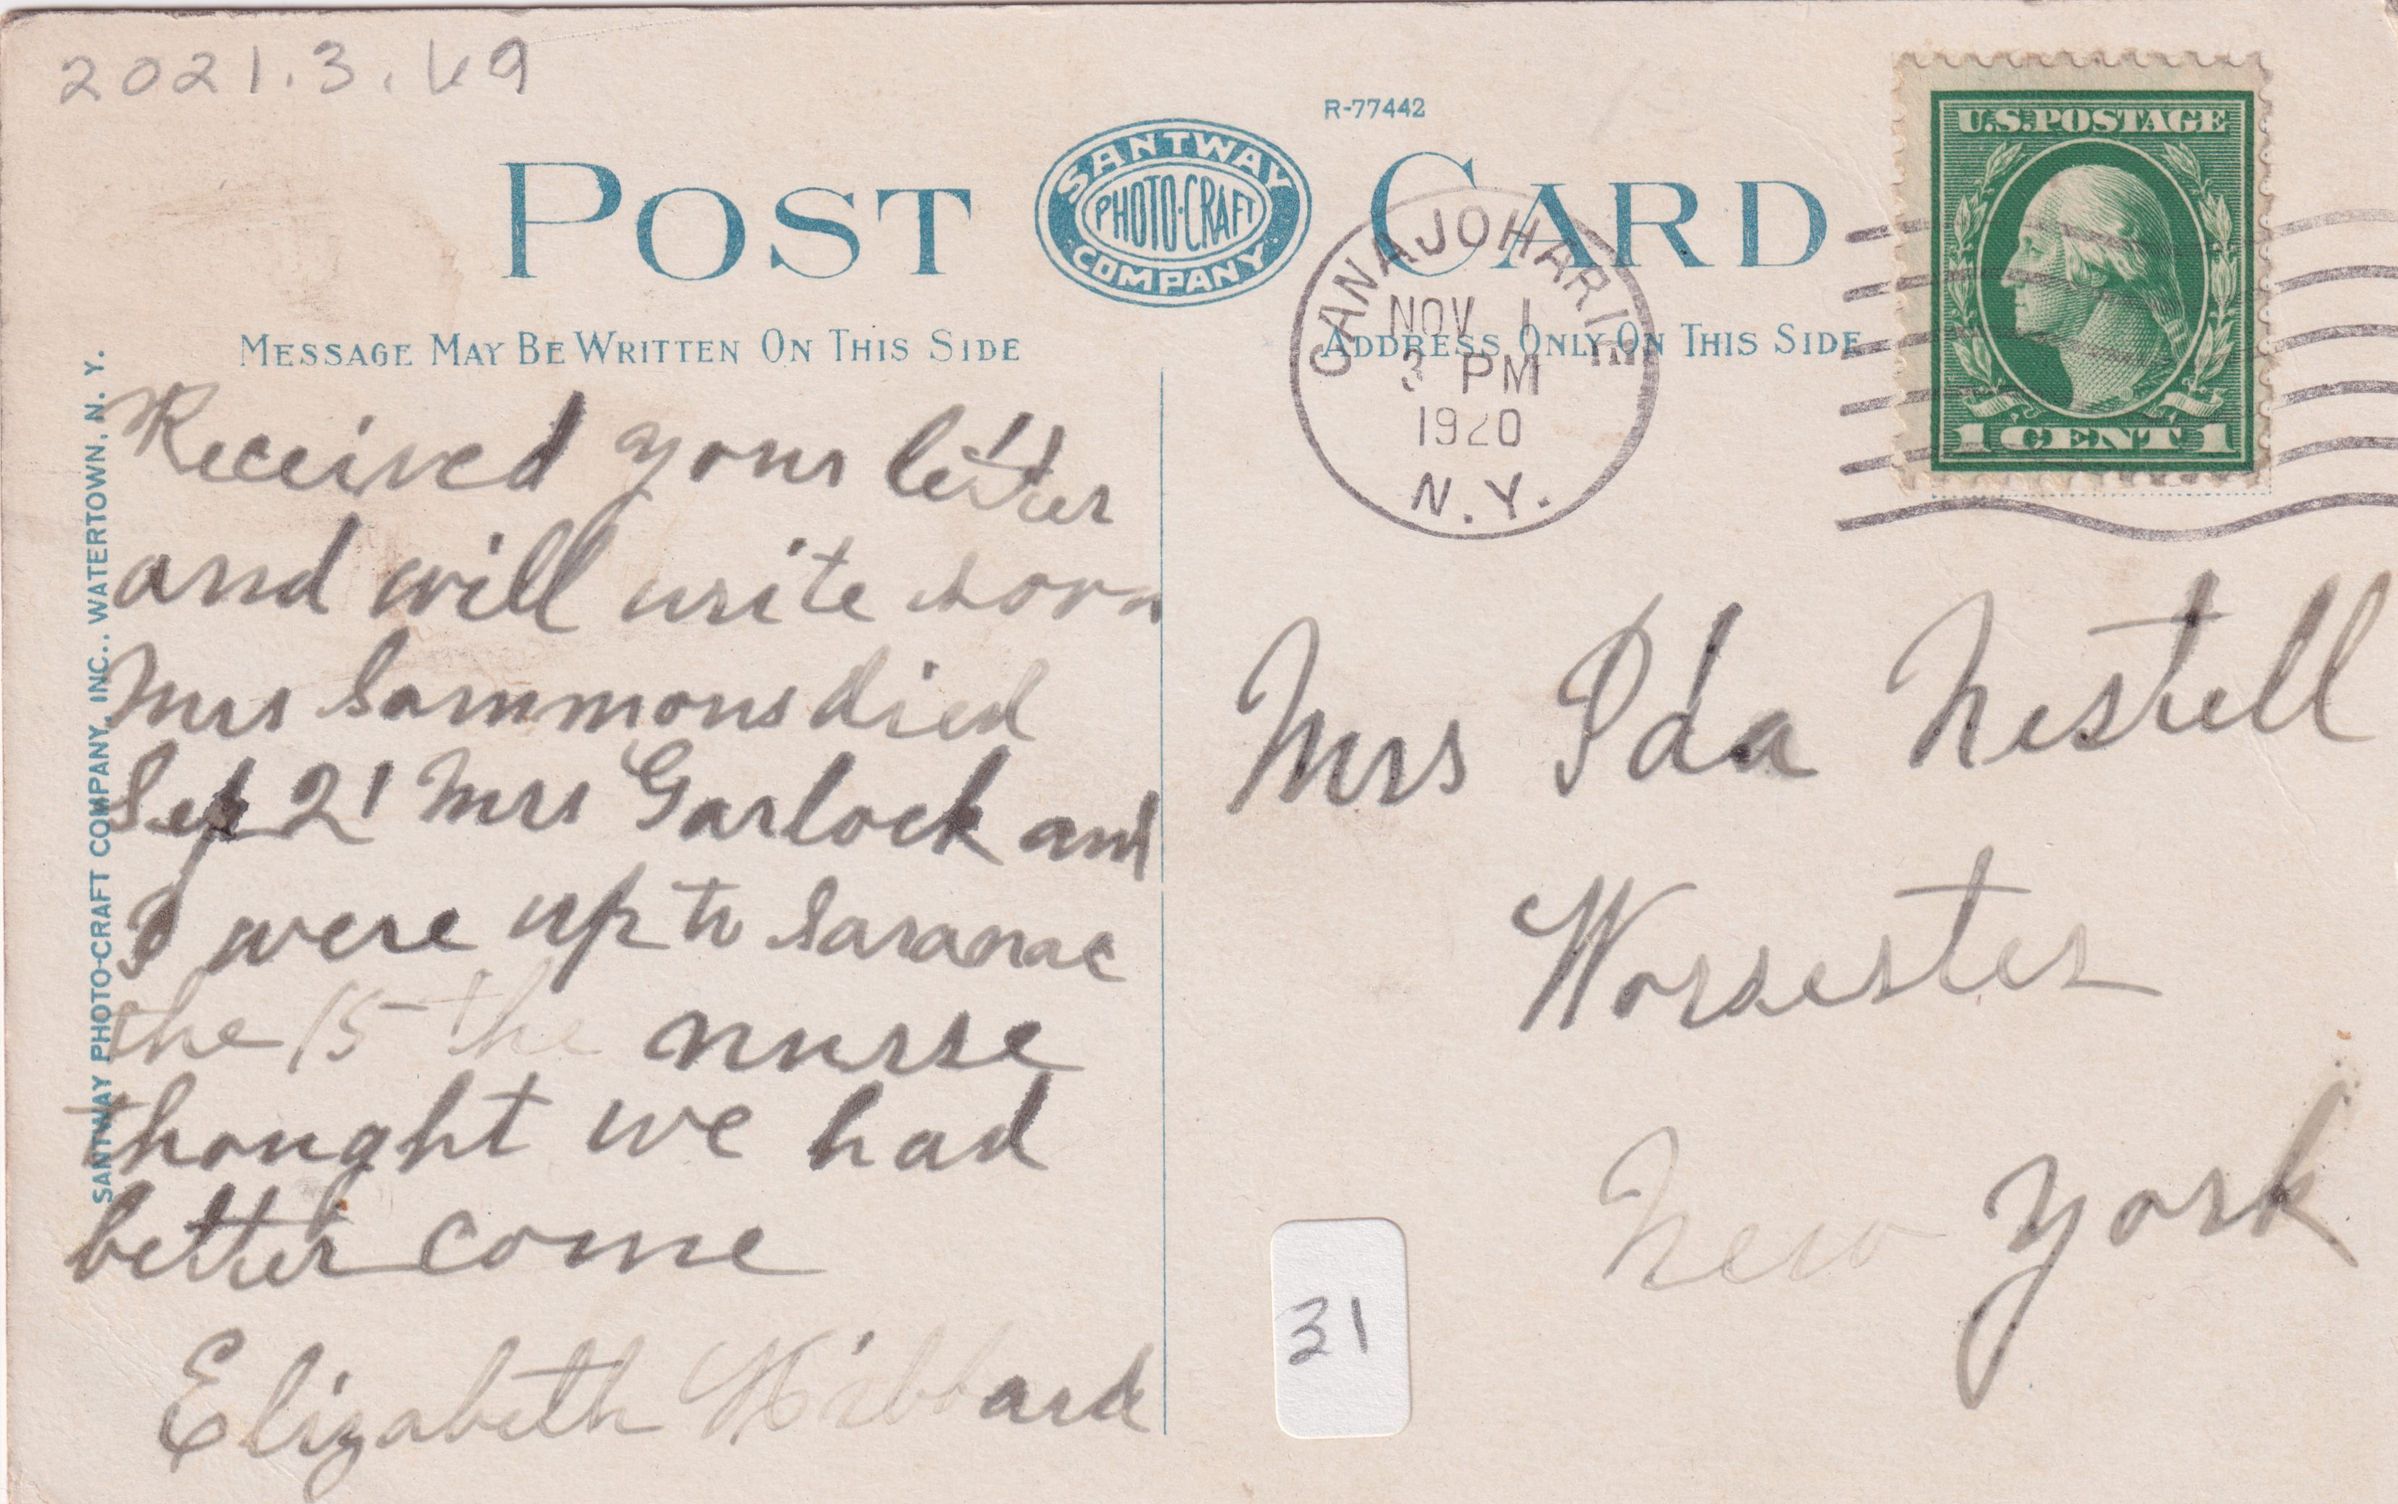 2021.3.69
R-77442
POST CARD
SANTWAY
PHOTO-CRAFT
COMPANY
U.S.POSTAGE
1 CENT 1
CANAJOHARIE
NOV 1
3 PM
1920
N.Y.
MESSAGE MAY BE WRITTEN ON THIS SIDE
ADDRESS ONLY ON THIS SIDE
SANTWAY PHOTO-CRAFT COMPANY, INC., WATERTOWN, N. Y.
Received your letter
and will write soon
Mrs Sammons died
Sep 21 Mrs Garlock and
I were up to Saranac
the 15 the nurse
thought we had
better come
Elizabeth Hibbard
Mrs Ida Nestell
Worsester
New York
31